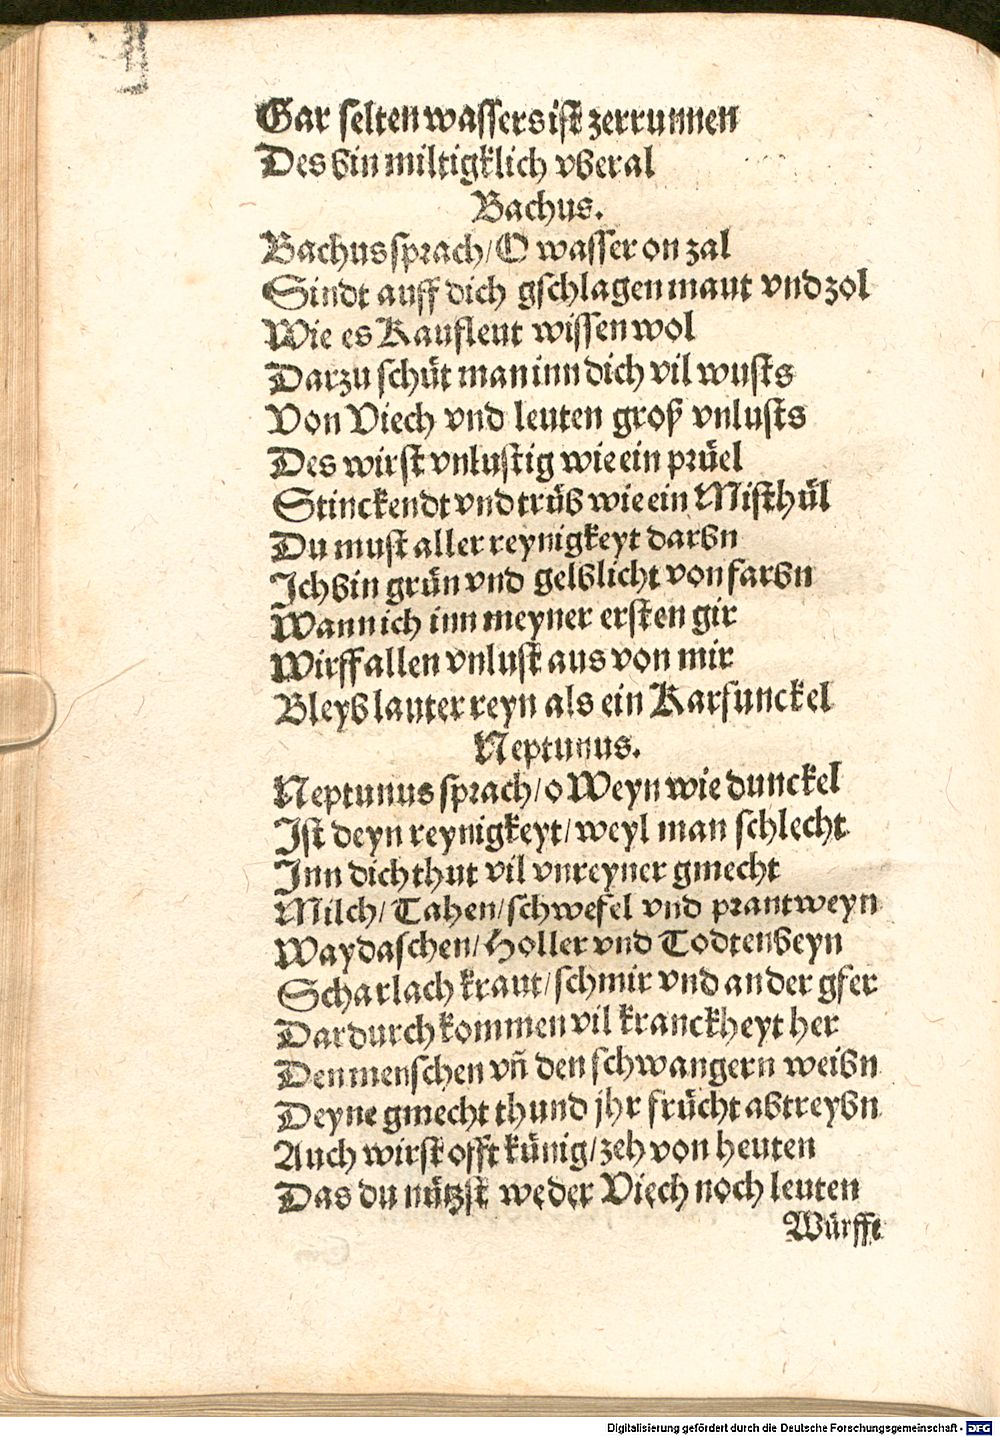 Gar selten wassers ist zerrunnen
Des bin miltigklich vberal
Bachus.
Bachus sprach/ O wasser on zal
Sindt auff dich gschlagen maut vnd zol
Wie es Kaufleut wissen wol
Darzu schüt man inn dich vil wusts
Von Viech vnd leuten groß vnlusts
Des wirst vnlustig wie ein prüel
Stinckendt vnd trüb wie ein Misthül
Du must aller reynigkeyt darbn
Ich bin grün vnd gelblicht von farbn
Wann ich inn meyner ersten gir
Wirff allen vnlust aus von mir
Bleyb lauter reyn als ein Karfunckel
Neptunus.
Neptunus sprach/ o Weyn wie dunckel
Ist deyn reynigkeyt/ weyl man schlecht
Inn dich thut vil vnreyner gmecht
Milch/ Tahen/ schwefel vnd prantweyn
Waydaschen/ Holler vnd Todtenbeyn
Scharlach kraut/ schmir vnd ander gfer
Dardurch kommen vil kranckheyt her
Den menschen vñ den schwangern weibn
Deyne gmecht thund jhr frücht abtreybn
Auch wirst offt künig/ zeh von heuten
Das du nützst weder Viech noch leuten
Würfft
Digitalisierung gefördert durch die Deutsche Forschungsgemeinschaft - DFG